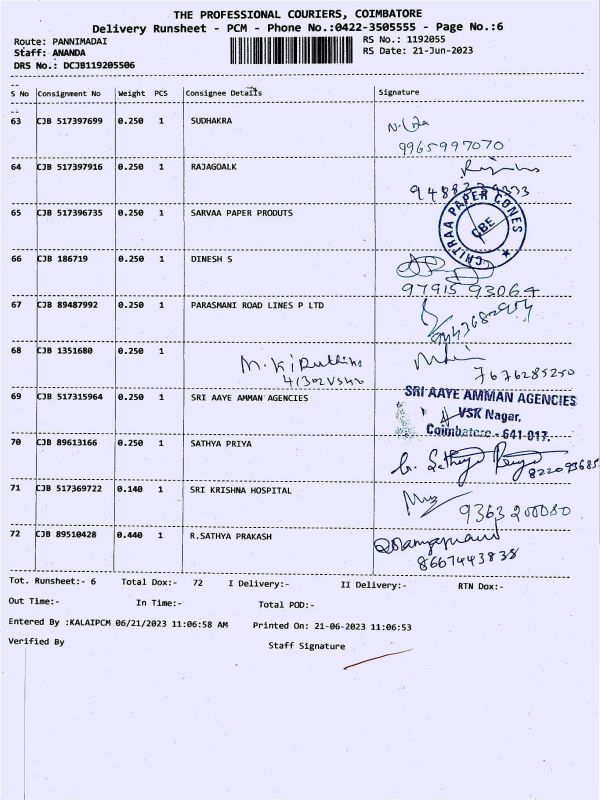 THE PROFESSIONAL COURIERS, COIMBATORE
Delivery Runsheet - PCM - Phone No.:0422-3505555 - Page No.:6
Route: PANNIMADAI RS No.: 1192055
Staff: ANANDA RS Date: 21-Jun-2023
DRS No.: DCJB119205506
S No Consignment No Weight PCS Consignee Details Signature
63 CJB 517397699 0.250 1 SUDHAKRA
9965997070
64 CJB 517397916 0.250 1 RAJAGOALK
65 CJB 517396735 0.250 1 SARVAA PAPER PRODUTS
CHITRAA PAPER CONES
CBE
66 CJB 186719 0.250 1 DINESH S
97915 93064
67 CJB 89487992 0.250 1 PARASMANI ROAD LINES P LTD
68 CJB 1351680 0.250 1
7676285250
69 CJB 517315964 0.250 1 SRI AAYE AMMAN AGENCIES
SRI AAYE AMMAN AGENCIES
VSK Nagar,
Coimbatore - 641-017.
70 CJB 89613166 0.250 1 SATHYA PRIYA
71 CJB 517369722 0.140 1 SRI KRISHNA HOSPITAL
9363200080
72 CJB 89510428 0.440 1 R.SATHYA PRAKASH
8667443838
Tot. Runsheet:- 6 Total Dox:- 72 I Delivery:- II Delivery:- RTN Dox:-
Out Time:- In Time:- Total POD:-
Entered By :KALAIPCM 06/21/2023 11:06:58 AM Printed On: 21-06-2023 11:06:53
Verified By Staff Signature